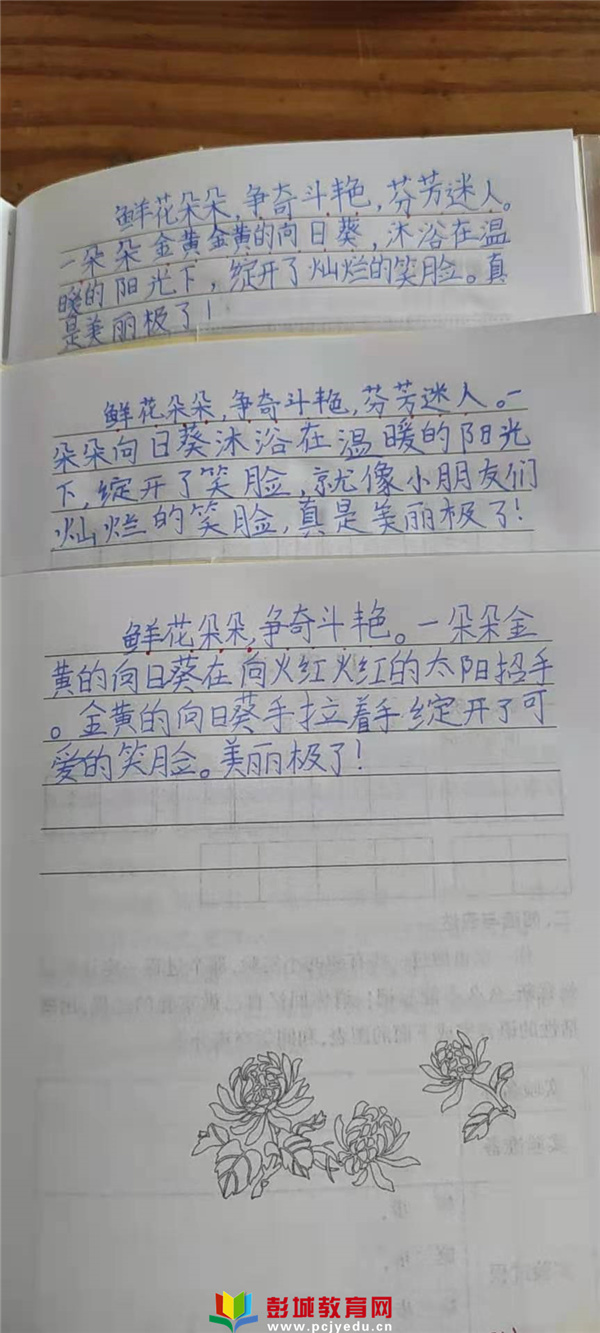 鲜花朵朵，争奇斗艳，芬芳迷人。
一朵朵金黄金黄的向日葵，沐浴在温
暖的阳光下，绽开了灿烂的笑脸。真
是美丽极了！
鲜花朵朵，争奇斗艳，芬芳迷人。一
朵朵向日葵沐浴在温暖的阳光
下，绽开了笑脸，就像小朋友们
灿烂的笑脸，真是美丽极了！
鲜花朵朵，争奇斗艳。一朵朵金
黄的向日葵在向火红火红的太阳招手
。金黄的向日葵手拉着手绽开了可
爱的笑脸。美丽极了！
彭城教育网
www.pcjyedu.cn